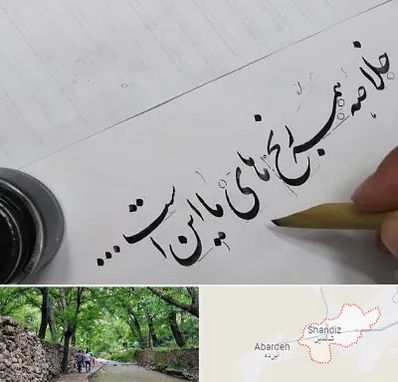 خلاصه همه رنج های ما این است...
Shandiz
شاندیز
Abardeh
ابرده